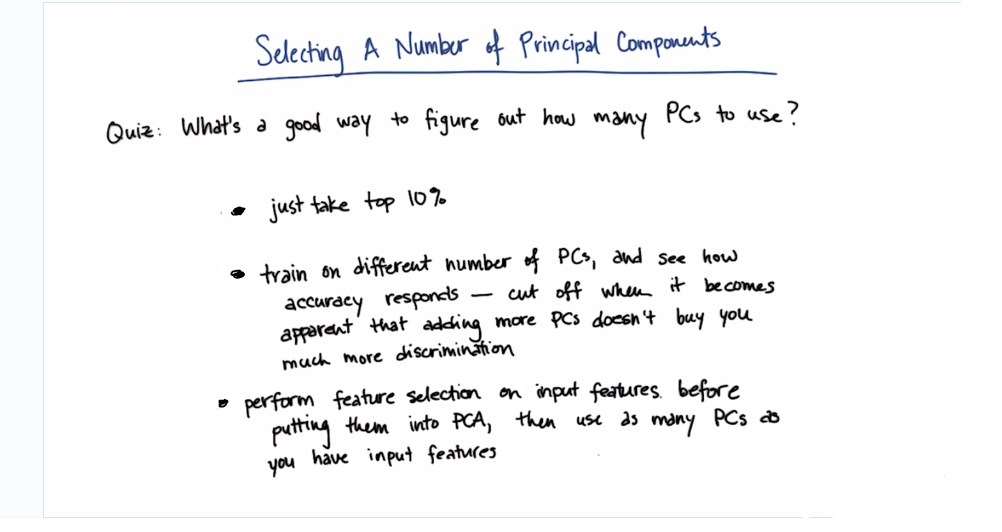 Selecting A Number of Principal Components
Quiz: What's a good way to figure out how many PCs to use?
• just take top 10%
• train on different number of PCs, and see how
accuracy responds — cut off when it becomes
apparent that adding more PCs doesn't buy you
much more discrimination
• perform feature selection on input features before
putting them into PCA, then use as many PCs as
you have input features